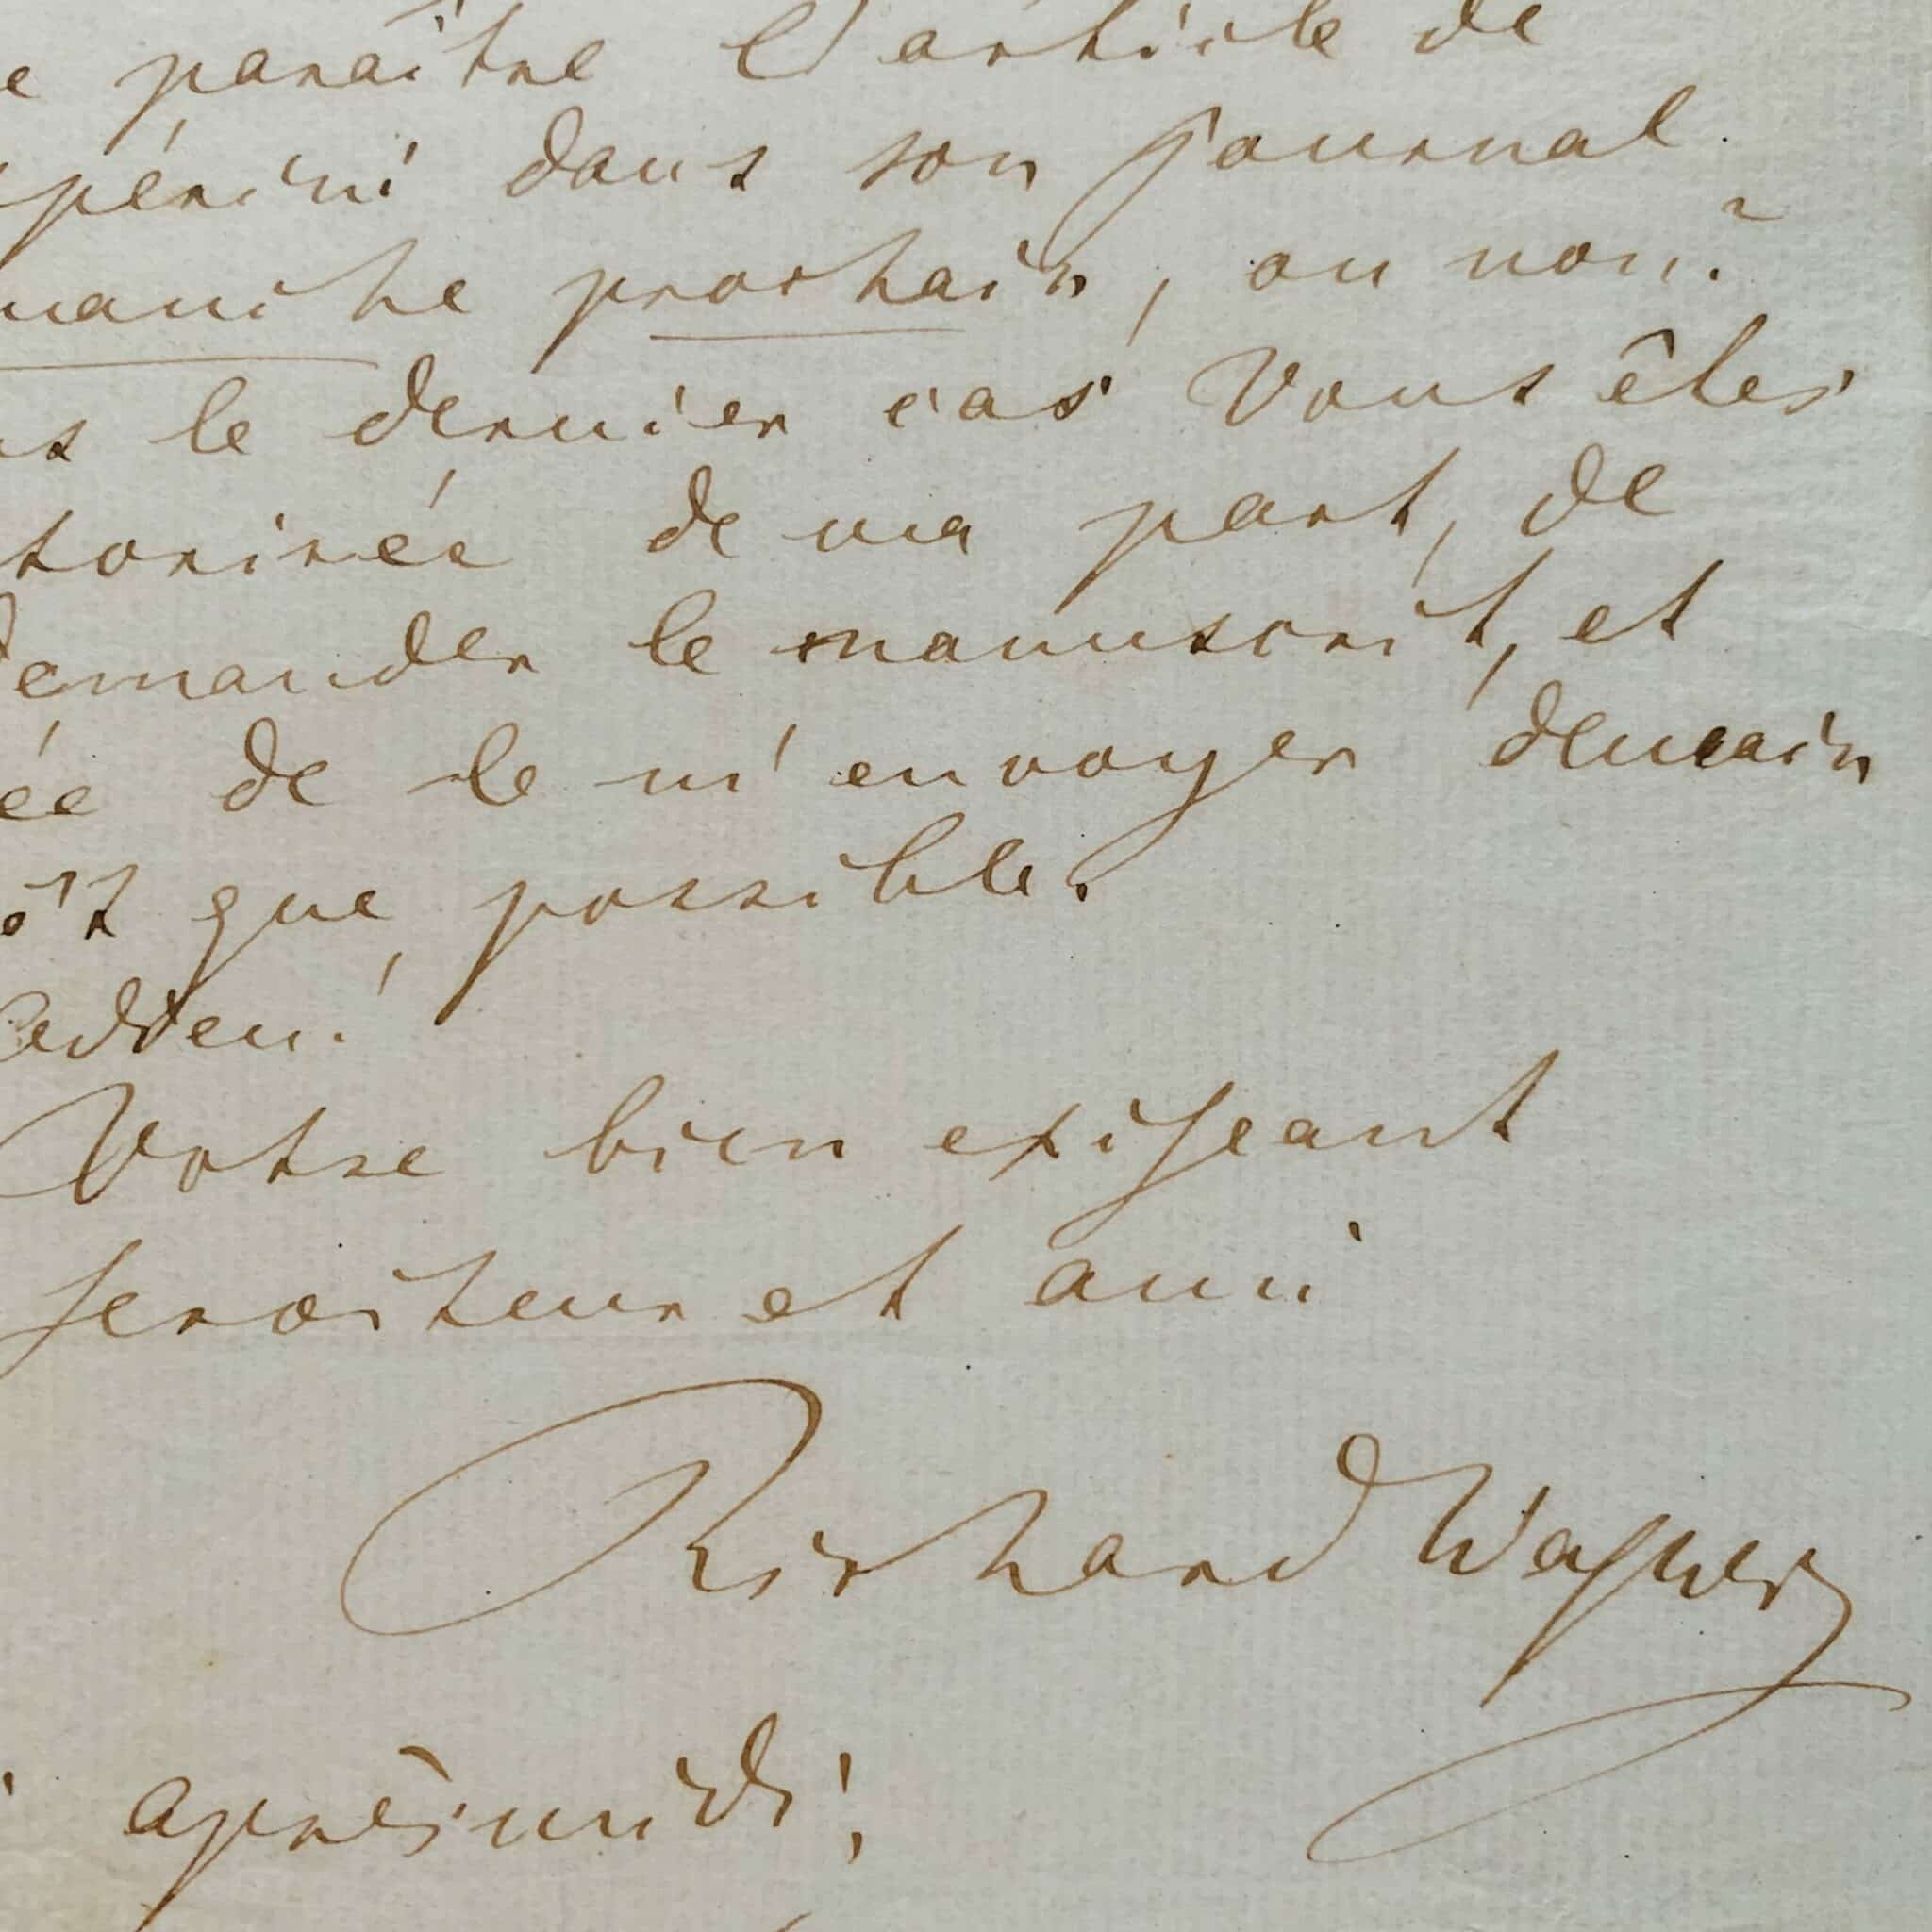 e paraître l'article de
spérini dans son journal
manche prochain, ou non?
ns le dernier cas Vous êtes
torisée de ma part, de
demander le manuscrit, et
ée de le m'envoyer demain
ôt que possible.
Adieu!
Votre bien exigeant
serviteur et ami
Richard Wagner
aprèsmidi!